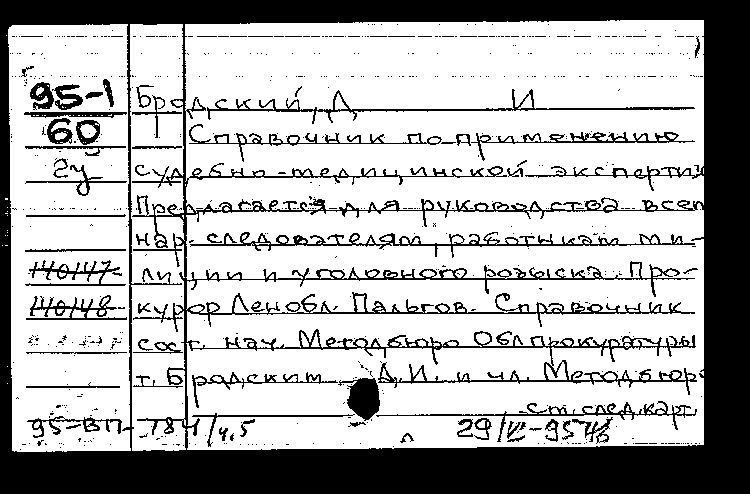 95-1 Бродский, Д И
60 Справочник по применению
2у судебно-медицинской экспертиз
Предлагается для руководства всем
нар. следователям, работникам ми-
140147 лиции и уголовного розыска. Про-
140148 курор Ленобл. Пальгов. Справочник
сост. нач. Методбюро Облпрокуратуры
т. Бродским Д.И. и чл. Методбюро
см. след. карт.
95-ВП-784/4.5 29/VI-95